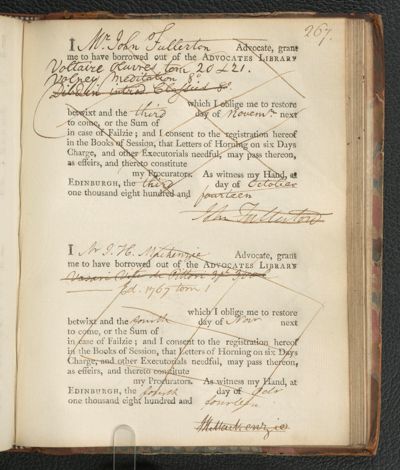 267.
I Mr John Fullerton Advocate, grant
me to have borrowed out of the ADVOCATES LIBRARY
Voltaire Œuvres tom 20 & 21.
Volney Meditation 8º.
Dibdin introd. Classics 8º.
which I oblige me to restore
betwixt and the third day of Novem.r next
to come, or the Sum of
in case of Failzie; and I consent to the registration hereof
in the Books of Session, that Letters of Horning on six Days
Charge, and other Executorials needful, may pass thereon,
as effeirs, and thereto constitute
my Procurators. As witness my Hand, at
EDINBURGH, the third day of October
one thousand eight hundred and fourteen
John Fullerton
I Mr J. H. Mackenzie Advocate, grant
me to have borrowed out of the ADVOCATES LIBRARY
Vasari Vite de Pittori
Ed. 1767 tom 1
which I oblige me to restore
betwixt and the fourth day of Nov.r next
to come, or the Sum of
in case of Failzie; and I consent to the registration hereof
in the Books of Session, that Letters of Horning on six Days
Charge, and other Executorials needful, may pass thereon,
as effeirs, and thereto constitute
my Procurators. As witness my Hand, at
EDINBURGH, the fourth day of Octr
one thousand eight hundred and fourteen
Mackenzie